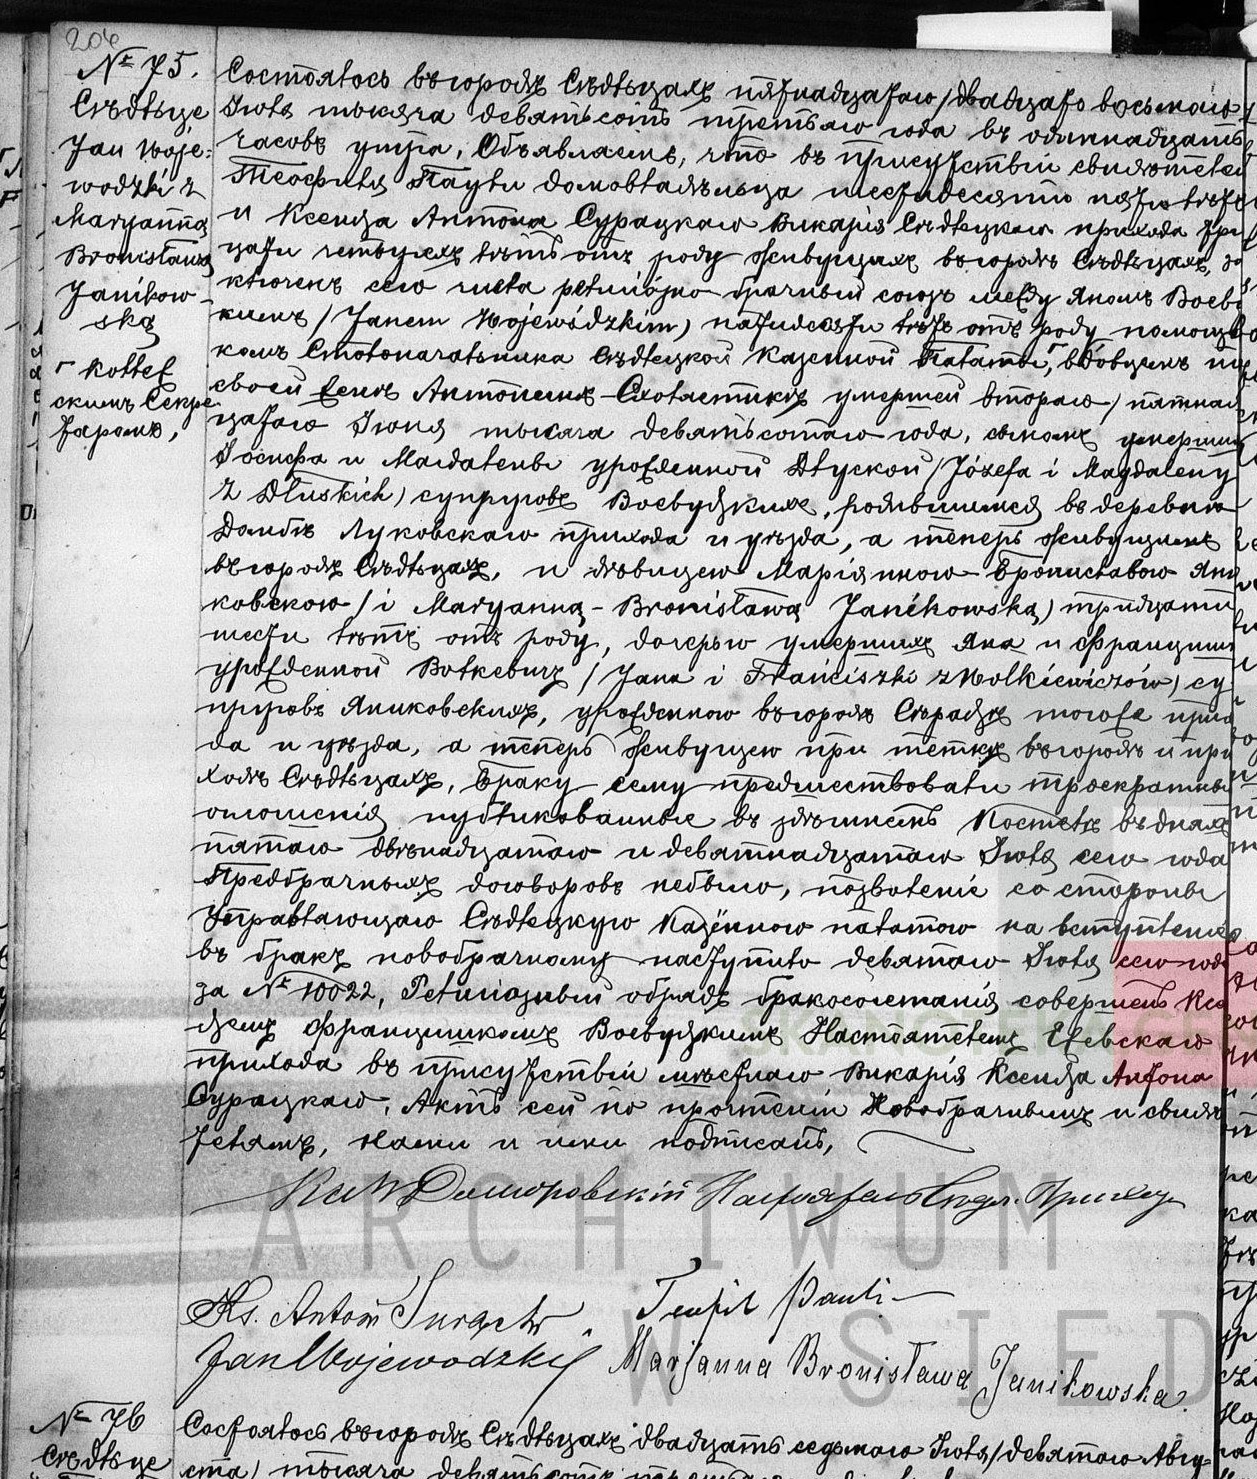 206
№ 75.
Сѣдльце
Jan Woje=
wódzki z
Maryanną
Bronisławą
Janikow-
ską
г коллеж
скимъ Секре
таремъ,
Состоялось въ городѣ Сѣдльцахъ пятнадцатаго /двадцать восьмого/
Іюля тысяча девятьсотъ третьяго года въ одиннадцать
часовъ утра, Объявляемъ, что въ присутствіи свидѣтелей
Теофиля Паули домовладѣльца шестидесяти пяти лѣтъ
и Ксендза Антона Сурацкаго Викарія Сѣдлецкаго прихода три
цати четырехъ лѣтъ отъ роду живущихъ въ городѣ Сѣдльцахъ, за
ключенъ сего числа религіозно-брачный союзъ между Яномъ Воевуд
кимъ /Janem Wojewódzkim) пятидесяти лѣтъ отъ роду помощни
комъ Столоначальника Сѣдлецкой Казенной Палаты,г вдовцемъ по
своей женѣ Антонинѣ Схоластикѣ умершей второго /пятнад
цатаго Іюня тысяча девятьсотаго года, сыномъ умершихъ
Іосифа и Магдалены урожденной Длуской /Józefa i Magdaleny
z Dłuskich) супруговъ Воевудзкихъ, родившимся въ деревнѣ
Домбѣ Луковскаго прихода и уѣзда, а теперь живущимъ
въ городѣ Сѣдльцахъ, и дѣвицею Маріянною-Брониславою Яни
ковскою /i Maryanną-Bronisławą Janikowską) тридцати
шести лѣтъ отъ роду, дочерью умершихъ Яна и Францишки
урожденной Волкевичъ /Jana i Franciszki z Wolkiewiczów) су
пруговъ Яниковскихъ, урожденною въ городѣ Сѣрадзѣ тогоже прихо
да и уѣзда, а теперь живущею при теткѣ въ городѣ и при
ходѣ Сѣдльцахъ, Браку сему предшествовали троекратныя
оглошенія публикованныя въ здѣшнемъ Костелѣ въ дняхъ
пятаго двѣнадцатаго и девятнадцатаго Іюля сего года
Предбрачныхъ договоровъ небыло, позволеніе со стороны
Управляющаго Сѣдлецкую Казённою палатою на вступленіе
въ бракъ новобрачному наступило девятаго Іюля сего года
за № 10022, Религіозный обрядъ бракосочетанія совершенъ Ксен
дземъ Францишкомъ Воевудзкимъ Настоятелемъ Ежевскаго
прихода въ присутствіи мѣстнаго Викарія Ксендза Антона
Сурацкаго, Актъ сей по прочтеніи Новобрачнымъ и свидѣ
телямъ, Нами и ими подписанъ,
Домбровскій Настоятель Сѣдл. Прихода
Ks. Antoni Suracki Teofil Pauli
Jan Wojewódzki Marjanna Bronisława Janikowska.
№ 76
Сѣдльце
Состоялось въ городѣ Сѣдльцахъ двадцать седьмого Іюля /девятаго Авгу-
ста) тысяча девятьсотъ третьяго
ARCHIWUM
W SIED